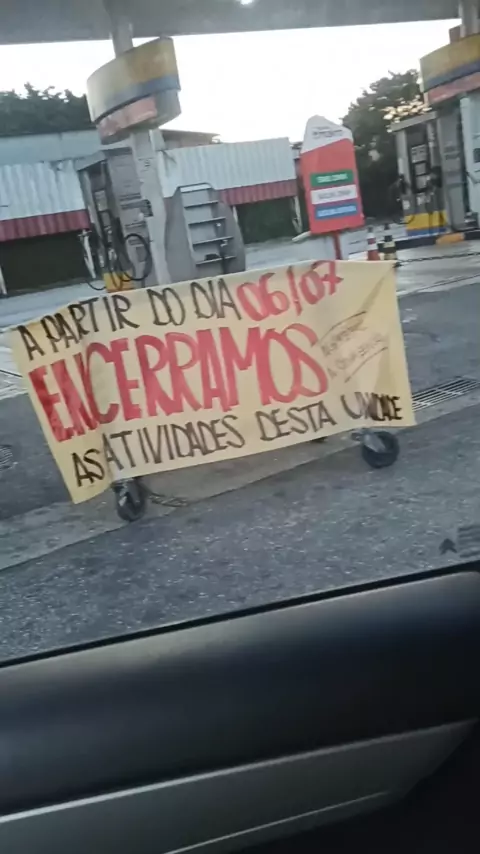 A PARTIR DO DIA 06/07
ENCERRAMOS
AS ATIVIDADES DESTA UNIDADE